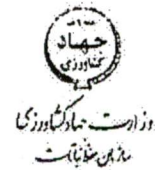 جهاد
کشاورزی
وزارت جهاد کشاورزی
سازمان حفظ نباتات